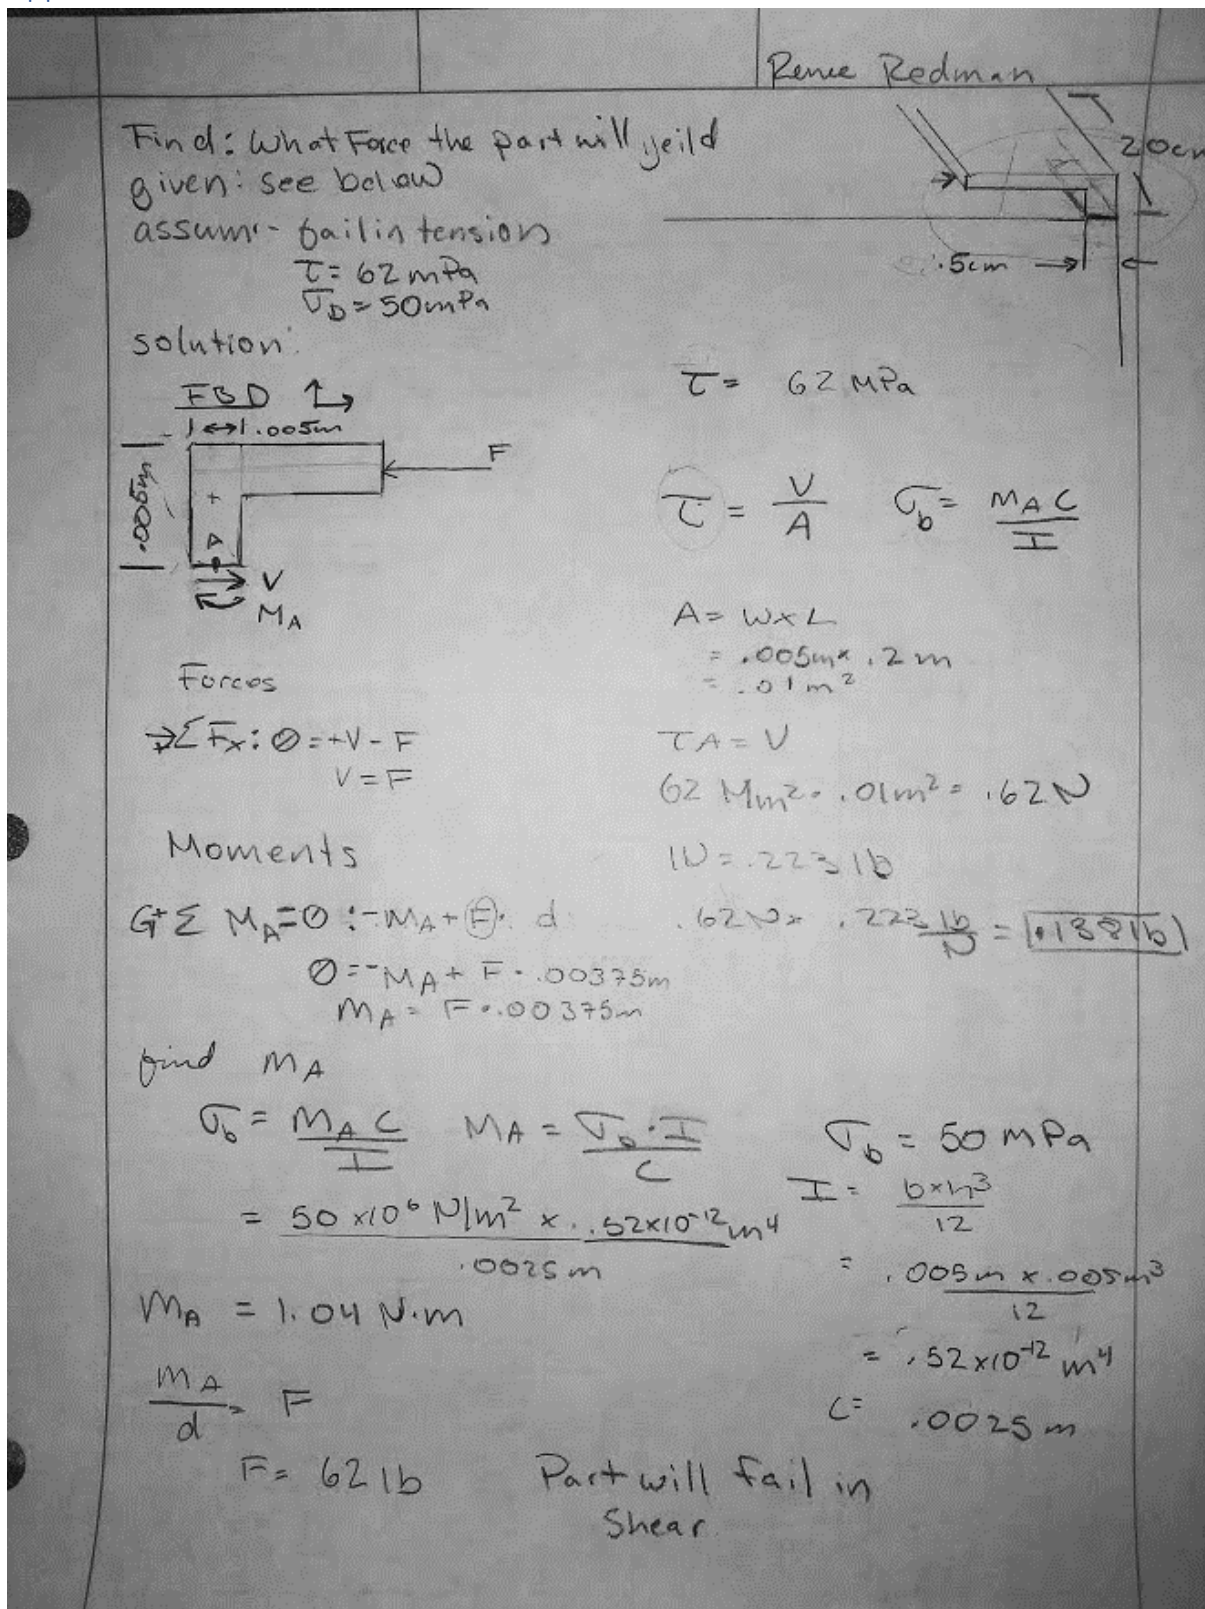 Renee Redman
Find: What Force the part will yeild
given: see below
assume - fail in tension
τ = 62 mPa
σb = 50 mPa
20cm
.5cm
solution:
FBD
.005m
.005m
F
A
V
MA
Forces
→ΣFx: 0 = +V - F
V = F
Moments
G+ Σ MA = 0 : -MA + F · d
0 = -MA + F · .00375m
MA = F · .00375m
find MA
σb = MA C / I    MA = σb · I / C
= 50 x10⁶ N/m² x .52x10⁻¹² m⁴ / .0025m
MA = 1.04 N·m
MA / d = F
F = 62 lb
τ = 62 MPa
τ = V / A    σb = MA C / I
A = W x L
= .005m x .2 m
= .01 m²
τA = V
62 M/m² · .01m² = .62N
1N = .223 lb
.62N x .223 lb/N = .138 lb
σb = 50 mPa
I = b x h³ / 12
= .005m x .005m³ / 12
= .52x10⁻¹² m⁴
C = .0025 m
Part will fail in
Shear